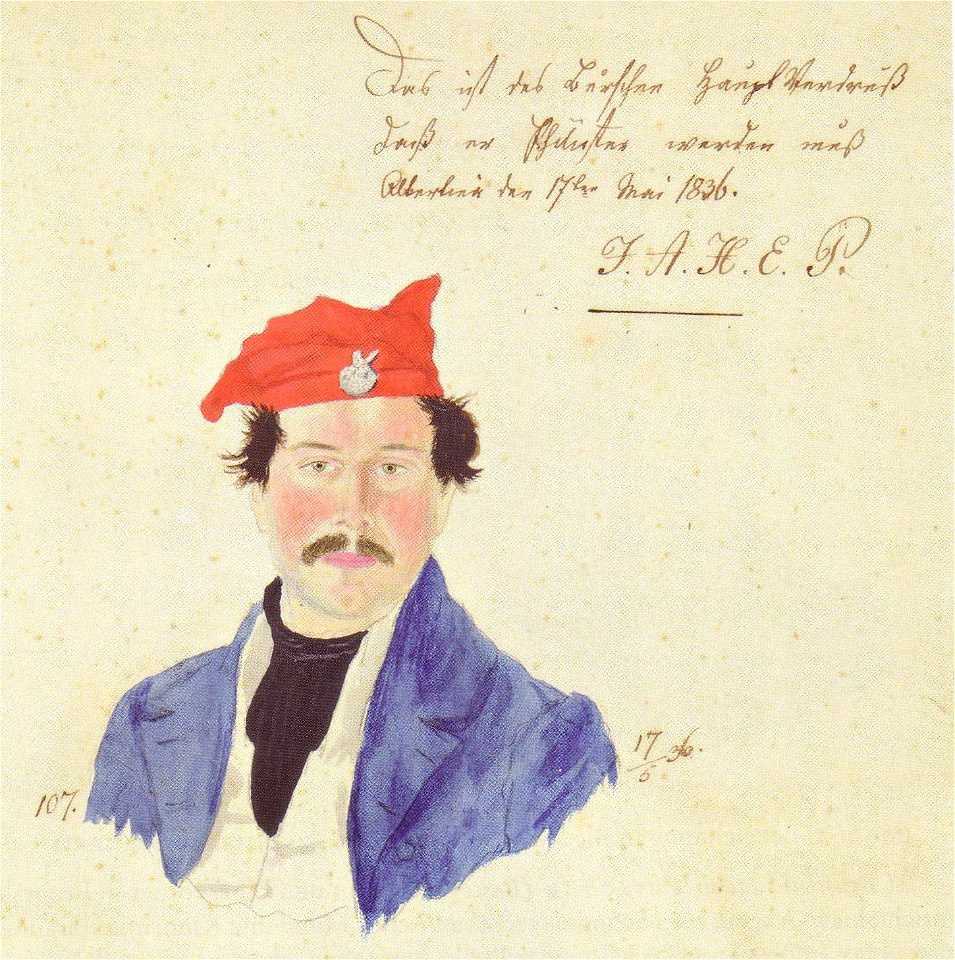 Das ist des Burschen Haupt Verdruß
Daß er Philister werden muß
den 17ten Mai 1836.
J. A. H. E. P.
17
5. 36.
107.